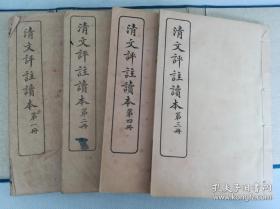 清文評註讀本 第一冊
清文評註讀本 第二冊
清文評註讀本 第四冊
清文評註讀本 第三冊
孔夫子舊書網